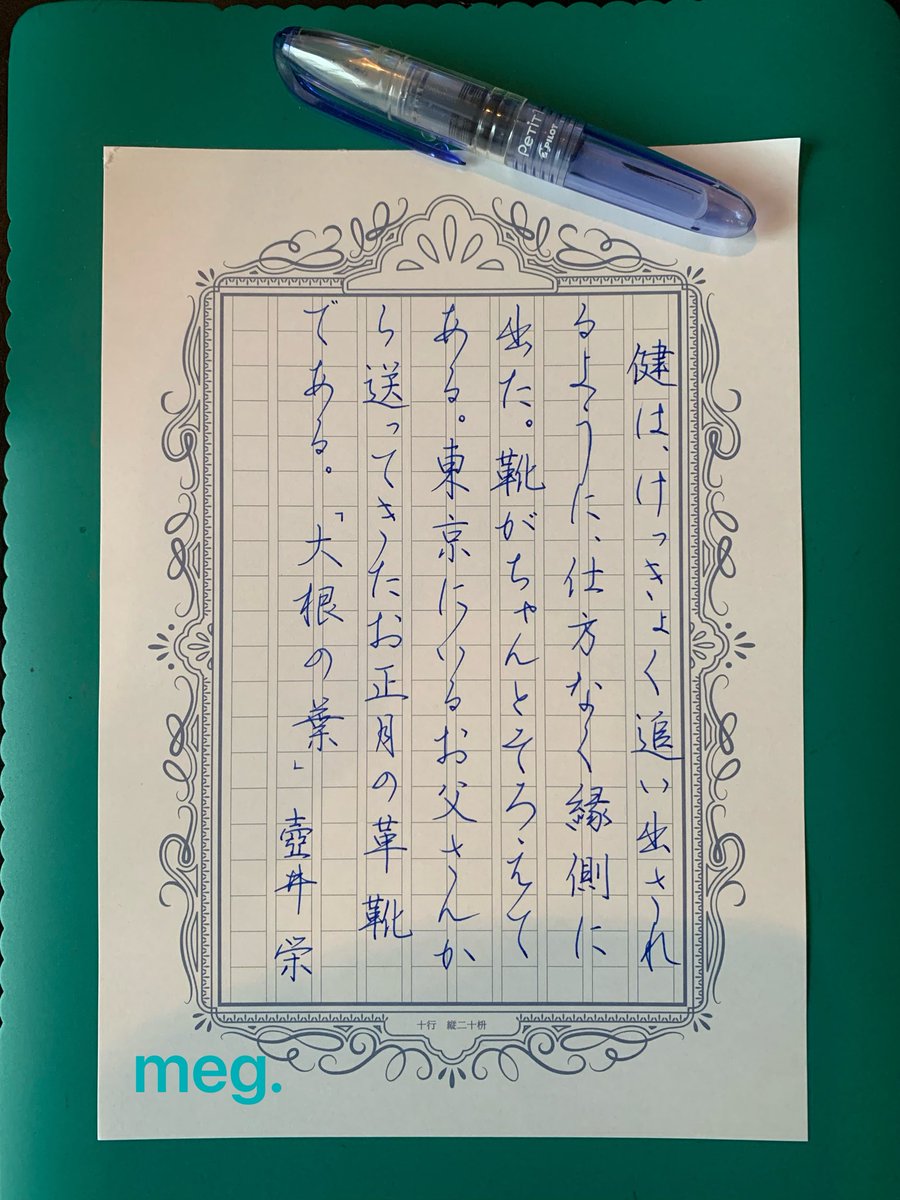 PETIT1
PILOT
健は、けっきょく追い出され
るように、仕方なく縁側に
出た。靴がちゃんとそろえて
ある。東京にいるお父さんか
ら送ってきたお正月の革靴
である。「大根の葉」壺井栄
十行 縦二十枡
meg.